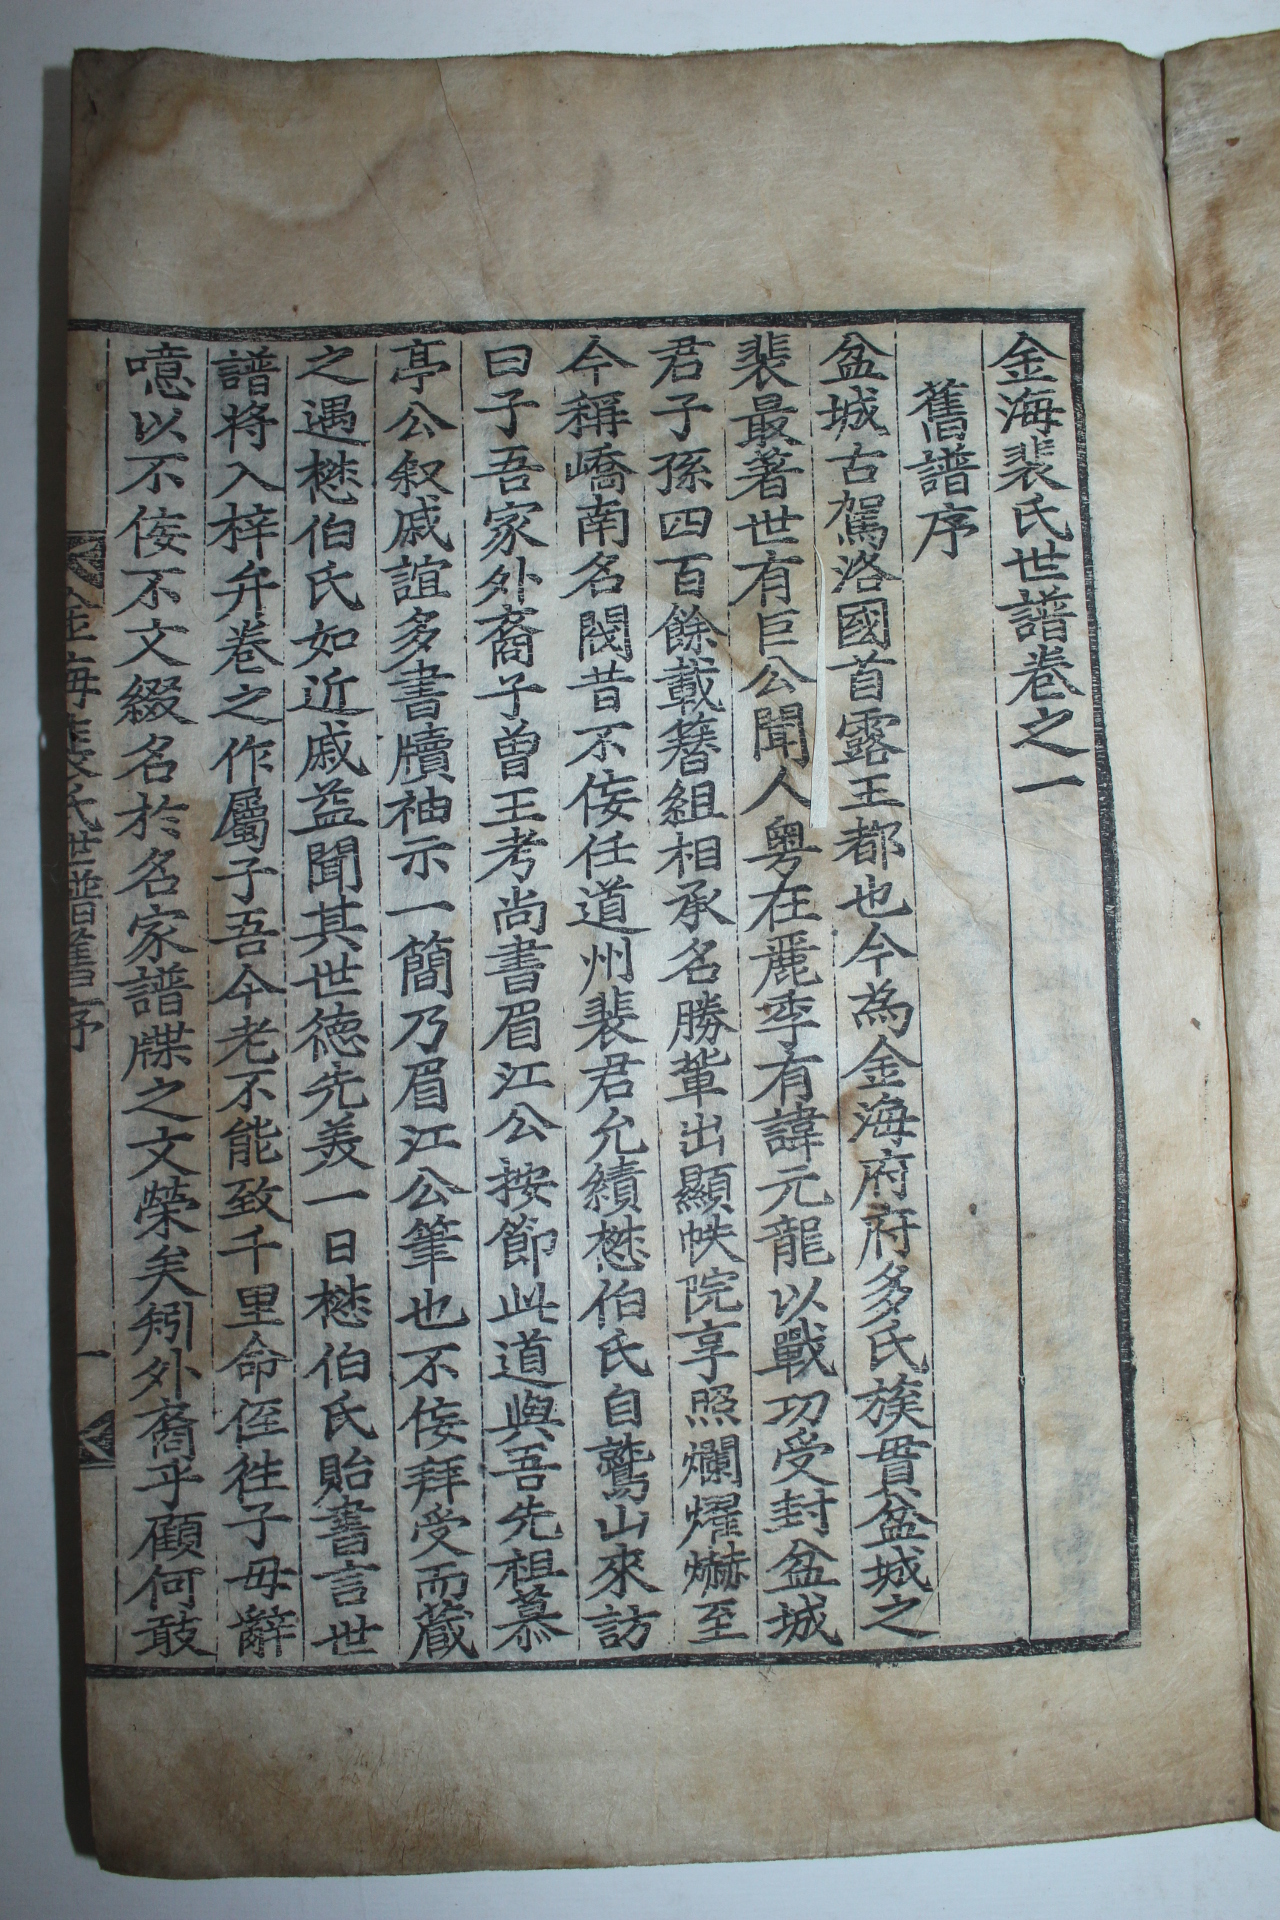 金海裴氏世譜卷之一
舊譜序
盆城古駕洛國首露王都也今為金海府府多氏族貫盆城之
裴最著世有巨公聞人粤在麗季有諱元龍以戰功受封盆城
君子孫四百餘載簪組相承名勝輩出顯帙院享照爛燿爀至
今稱嶠南名閥昔不侫任道州裴君允績懋伯氏自鷲山來訪
曰子吾家外裔子曾王考尚書眉江公按節此道與吾先祖慕
亭公叙戚誼多書牘袖示一簡乃眉江公筆也不侫拜受而蔵
之遇懋伯氏如近戚益聞其世德先美一日懋伯氏貽書言世
譜将入梓弁卷之作屬子吾今老不能致千里命侄徃子毋辭
噫以不侫不文綴名於名家譜牒之文榮矣矧外裔乎顧何敢
金海裴氏世譜舊序 一